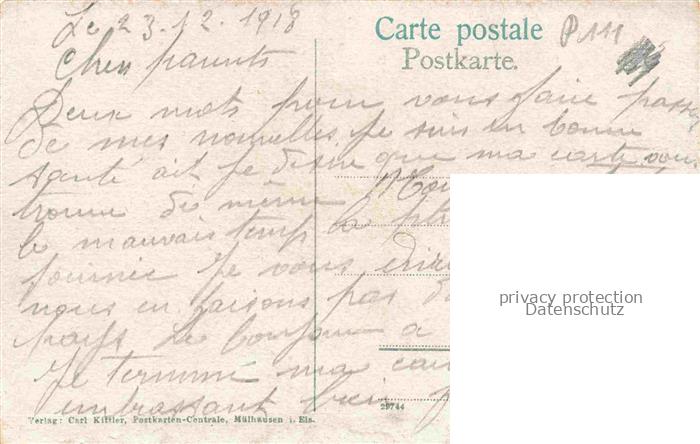 Le 23.12.1918
Carte postale
P 111
Postkarte.
Chers parents
Deux mots pour vous faire passer
de mes nouvelles. Je suis en bonne
santé ait je desire que ma carte vous
trouve de même
le mauvais temps la
journée Je vous
nous en faisons pas
pays Le bonjour a
Je termine ma
embrassant bien
privacy protection
Datenschutz
29744
Verlag: Carl Kittler, Postkarten-Centrale, Mülhausen i. Els.